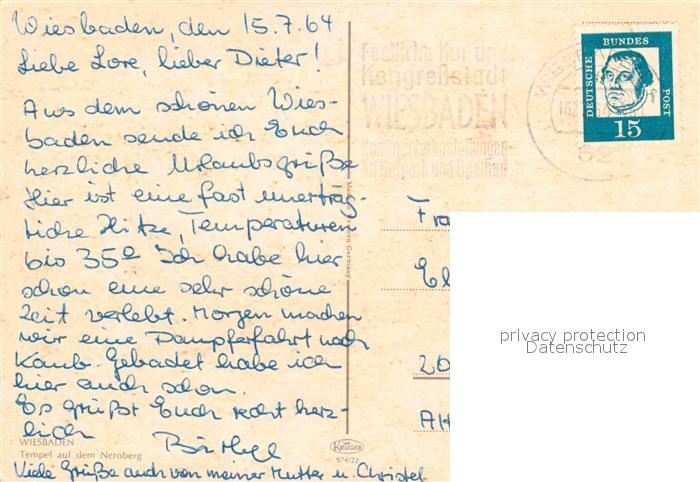 Wiesbaden, den 15.7.64
Liebe Lore, lieber Dieter!
Aus dem schönen Wies-
baden sende ich Euch
herzliche Urlaubsgrüße
Hier ist eine fast unerträg-
liche Hitze, Temperaturen
bis 35° Ich habe hier
schon eine sehr schöne
Zeit verlebt. Morgen machen
wir eine Dampferfahrt nach
Kaub. Gebadet habe ich
hier auch schon.
Es grüßt Euch recht herz-
lich
WIESBADEN
Tempel auf dem Neroberg
Viele Grüße auch von meiner Mutter u. Christel
Germany
KRÜGER
974/22
Festliche Kur und
Kongreßstadt
WIESBADEN
DEUTSCHE BUNDES POST
15
Fra
El
20
privacy protection
Datenschutz